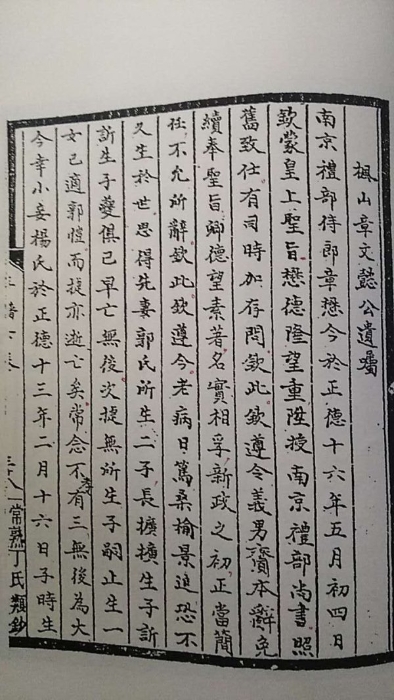 楓山章文懿公遺囑
南京禮部侍郎章懋今於正德十六年五月初四日
欽蒙皇上聖旨懋德隆望重陞授南京禮部尚書照
舊致仕有司時加存問欽此欽遵令義男賫本辭免
續奉聖旨卿德望素著名實相孚新政之初正當簡
任不允所辭欽此欽遵今老病日篤桑榆景逼恐不
久生於世思得先妻郭氏所生二子長擴擴生子訢
訢生子夔俱已早亡無後次㨗無所生子嗣止生一
女已適郭愷而㨗亦逝亡矣常念不孝有三無後為大
今幸小妾楊氏於正德十三年二月十六日子時生
常熟丁氏類鈔